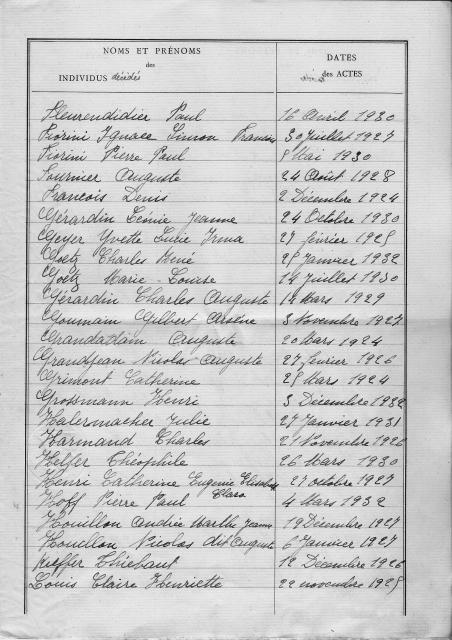 NOMS ET PRÉNOMS
des
INDIVIDUS décédés
DATES
des ACTES
Fleurendidier Paul 16 Avril 1930
Fiorini Ignace Simon Francois 30 Juillet 1927
Fiorini Pierre Paul 8 Mai 1930
Fournier Auguste 24 Août 1928
Francois Denis 2 Décembre 1924
Gérardin Léonie Jeanne 24 Octobre 1930
Geyer Yvette Lucie Irma 27 février 1925
Goetz Charles René 25 Janvier 1932
Goetz Marie-Louise 14 Juillet 1930
Gérardin Charles Auguste 14 Mars 1929
Goumain Gilbert Arsène 3 Novembre 1927
Grandadam Auguste 20 Mars 1924
Grandjean Nicolas Auguste 27 février 1926
Grimont Catherine 25 Mars 1924
Grossmann Henri 3 Décembre 1932
Halermacher Julie 27 Janvier 1931
Harmand Charles 21 Novembre 1926
Helfer Théophile 26 Mars 1930
Henri Catherine Eugenie Elisabeth 27 octobre 1927
Clara
Hoff Pierre Paul 4 Mars 1932
Houillon Andrée Marthe Jeanne 19 Décembre 1927
Houillon Nicolas dit Auguste 6 Janvier 1927
Kieffer Thiébaut 12 Décembre 1926
Louis Claire Henriette 22 novembre 1925